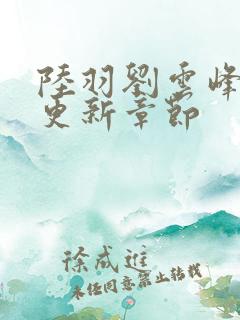 陸羽劉雲峰
更新章節
徐成進
未任同意禁止转载